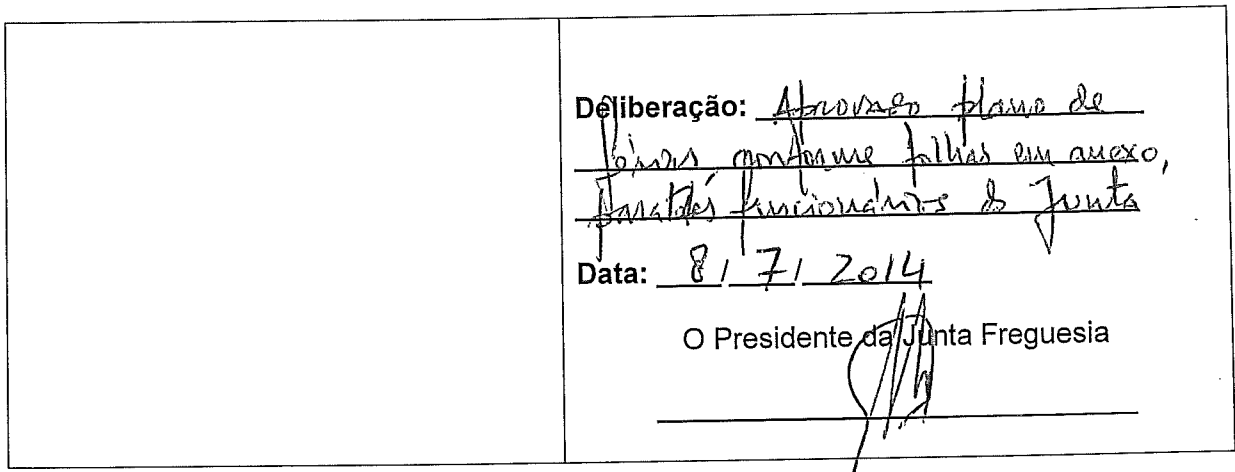 Deliberação: Aprovado plano de
férias conforme folhas em anexo,
funcionários da Junta
Data: 8/7/2014
O Presidente da Junta Freguesia